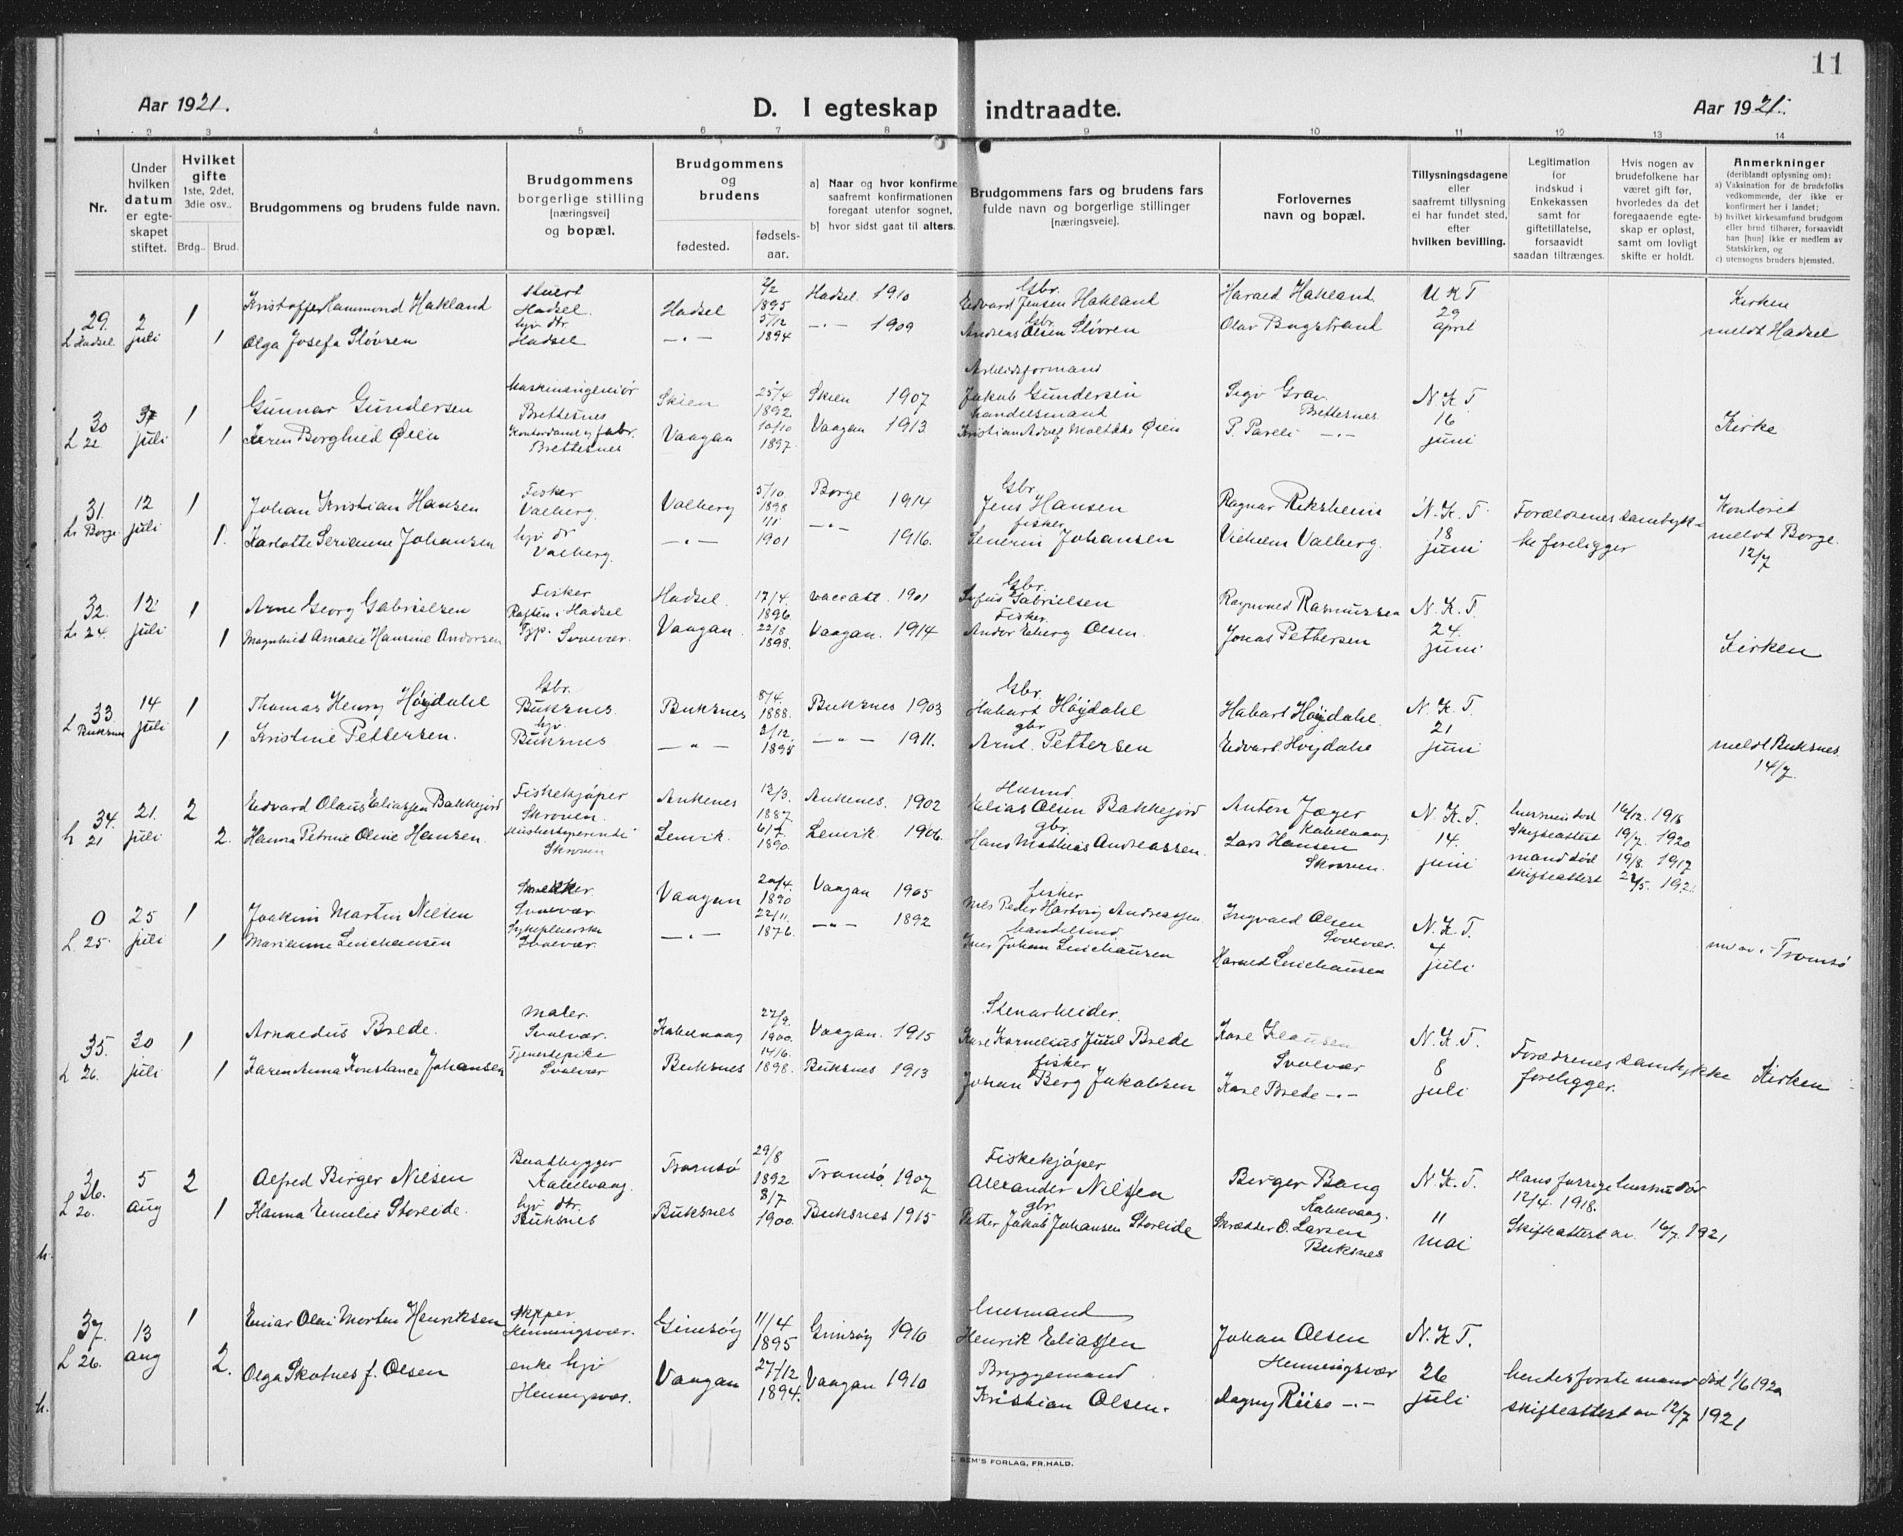 11
Aar 1921.
D. I egteskap indtraadte.
Aar 1921.
1 2 3 4 5 6 7 8 9 10 11 12 13 14
Nr.
Under hvilken datum er egteskapet stiftet.
Hvilket gifte 1ste, 2det, 3die osv..
Brdg.. Brud.
Brudgommens og brudens fulde navn.
Brudgommens borgerlige stilling [næringsvei] og bopæl.
Brudgommens og brudens
fødested. fødselsaar.
a) Naar og hvor konfirme
saafremt konfirmationen
foregaat utenfor sognet,
b) hvor sidst gaat til alters.
Brudgommens fars og brudens fars
fulde navn og borgerlige stillinger
[næringsvei].
Forlovernes
navn og bopæl.
Tillysningsdagene
eller
saafremt tillysning
ei har fundet sted,
efter
hvilken bevilling.
Legitimation
for
indskud i
Enkekassen
samt for
giftetillatelse,
forsaavidt
saadan tiltrænges.
Hvis nogen av
brudefolkene har
været gift før,
hvorledes da det
foregaaende egteskap
er opløst,
samt om lovligt
skifte er holdt.
Anmerkninger
(deriblandt oplysning om):
a) Vaksination for de brudefolks
vedkommende, der ikke er
konfirmert her i landet;
b) hvilket kirkesamfund brudgom
eller brud tilhører, forsaavidt
han [hun] ikke er medlem av
Statskirken, og
c) utensogns bruders hjemsted.
29. 2 juli 1 Kristoffer Hammond Hakland Hadsel. Hadsel 2/2 1895 Hadsel 1910 Gbr. Edvard Jensen Hakland Harald Hakland U K T 29 april Kirken
L Hadsel 1 Olga Josefa Sløvren hjv dtr Hadsel — " — 5/12 1894 — " — 1909 Gbr. Andreas Olsen Sløvren Olav Bugstrand meldt Hadsel
30 juli 1 Gunnar Gundersen Maskiningeniør Brettesnes Skien 25/4 1892 Skien 1907 Arbeidsformand Jakob Gundersen Brettesnes N. K T. 16 juni
L 22 1 Karen Borghild Øien Brettesnes Vaagan 10/10 1897 Vaagan 1913 Handelsmand Kristian Adolf Moltzke Øien Kirke
31. 12 juli 1 Johan Kristian Hansen Fisker Valberg. Valberg 5/10 1898 Borge 1914 Gbr. Jens Hansen Ragnar Reksheim N. K. T 18 juni Forældrenes samtykke foreligger Kontoret
L. Borge 1. Karlotte Serianne Johansen hjv dr Valberg. — " — 1/1 1901 — " — 1916. fisker Senerin Johansen Vilhelm Valberg. meldt Borge 12/7
32. 12 juli 1 Arne Georg Gabrielsen Fisker Raften i Hadsel Hadsel 17/4. 1896 1901 Gbr. Gabrielsen Ragnvald Rasmussen N. K T. 24. juni
L. 24. 1 Magnhild Amalie Hansine Andorsen Svolvær. Vaagan. 22/8 1898. Vaagan. 1914 Fisker. Andor Eberg Olsen. Jonas Pettersen Kirken
33. 14 juli 1 Thomas Henry Høydahl Gbr. Buksnes. Buksnes 8/4. 1888. Buksnes 1903 Gbr. Habart Høydahl Habart Høydahl. N. K T. 21 juni
L Buksnes 1 Kristine Pettersen. hjv. Buksnes — " — 2/12. 1895 — " — 1911. gbr Arnt. Pettersen Edvart Høydahl meldt Buksnes 14/7.
34. 21. juli 2 Edvard Olaus Eliassen Bakkejord Fiskekjøper Skroven. Ankenes 12/3. 1887. Ankenes. 1902 Husmd. Elias Olsen Bakkejord Anton Jæger Kabelvaag N. K T. 14. juni 16/12. 1918 Skifteattest 19/7. 1920
L 21 2. Hanna Petrine Oline Hansen. Skroven Lenvik. 1890. Lenvik. 1906. gbr. Hans Mathias Andreassen. Lars Hansen Skroven. mand død 19/8. 1917 skifteattest 22/5. 192
0 25 juli 1 Joakim Martin Nilsen Svolvær Vaagan 20/4. 1890 Vaagan 1905 fisker Nils Peder Hartvig Andreassen Ingvald Olsen Svolvær. N. K T. 4 juli
L. 25. 1 Marianne Leiehausen Sykepleierske Svolvær. — " — 22/11. 1876. — " — 1892 Johan Leiehausen Harald Leiehausen Tromsø
35. 30 juli 1 Arnaldus Brede. Maler. Svolvær. Kabelvaag 27/9. 1900. Vaagan. 1915 Stenarbeider. Karl Kornelius Juul Brede Karl Klausen Svolvær N. K. T. 8 juli Forældrenes samtykke foreligger.
L 26. 1 Karen Anna Konstance Johansen Tjenestepike Svolvær Buksnes 14/6. 1898. Buksnes 1913 fisker Johan Berg Jakobsen Karl Brede — " — Kirken
36. 5 aug 2 Alfred Birger Nilsen Baatbygger Kabelvaag. Tromsø 29/8 1892 Tromsø 1907 Fiskekjøper Alexander Nilssen Birger Bang Kabelvaag. N. K T. 11 mai Hans forrige hustru dør 12/4. 1918.
L 20. 1 Hanna Emilie Storeide. hjv dtr. Buksnes Buksnes 8/7 1900. Buksnes 1915 gbr. Petter Jakob Johansen Storeide Skrædder O. Larsen Buksnes Skifteattest av. 16/7. 1921
h.
37. 13 aug 1 Einar Olai Morten Henriksen Skipper Henningsvær. Gimsøy 11/4 1895 Gimsøy 1910 husmand Henrik Eliassen Johan Olsen Henningsvær N. K T. 26 juli
L 26. 2. Olga Skotnes f. Olsen enke hjv Henningsvær. Vaagan 27/12 1894. Vaagan 1910 Bryggemand Kristian Olsen. Dagny Riise — " — hendes første mand død 1/6 1920 skifteattest av 12/7 1921
h.
SEM'S FORLAG, FR.HALD.